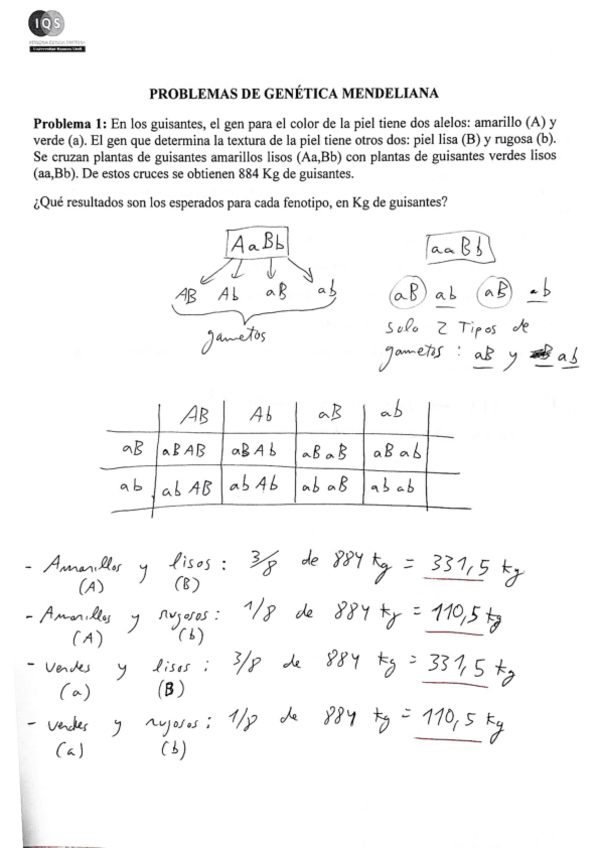 IQS
PROBLEMAS DE GENÉTICA MENDELIANA
Problema 1: En los guisantes, el gen para el color de la piel tiene dos alelos: amarillo (A) y
verde (a). El gen que determina la textura de la piel tiene otros dos: piel lisa (B) y rugosa (b).
Se cruzan plantas de guisantes amarillos lisos (Aa,Bb) con plantas de guisantes verdes lisos
(aa,Bb). De estos cruces se obtienen 884 Kg de guisantes.
¿Qué resultados son los esperados para cada fenotipo, en Kg de guisantes?
AaBb aaBb
AB Ab aB ab aB ab aB ab
gametos
Solo 2 Tipos de
gametos : aB y ab
AB Ab aB ab
aB aB AB aB Ab aB aB aB ab
ab ab AB ab Ab ab aB ab ab
- Amarillos y lisos : 3/8 de 884 kg = 331,5 kg
(A) (B)
- Amarillos y rugosos : 1/8 de 884 kg = 110,5 kg
(A) (b)
- verdes y lisos : 3/8 de 884 kg = 331,5 kg
(a) (B)
- verdes y rugosos : 1/8 de 884 kg = 110,5 kg
(a) (b)